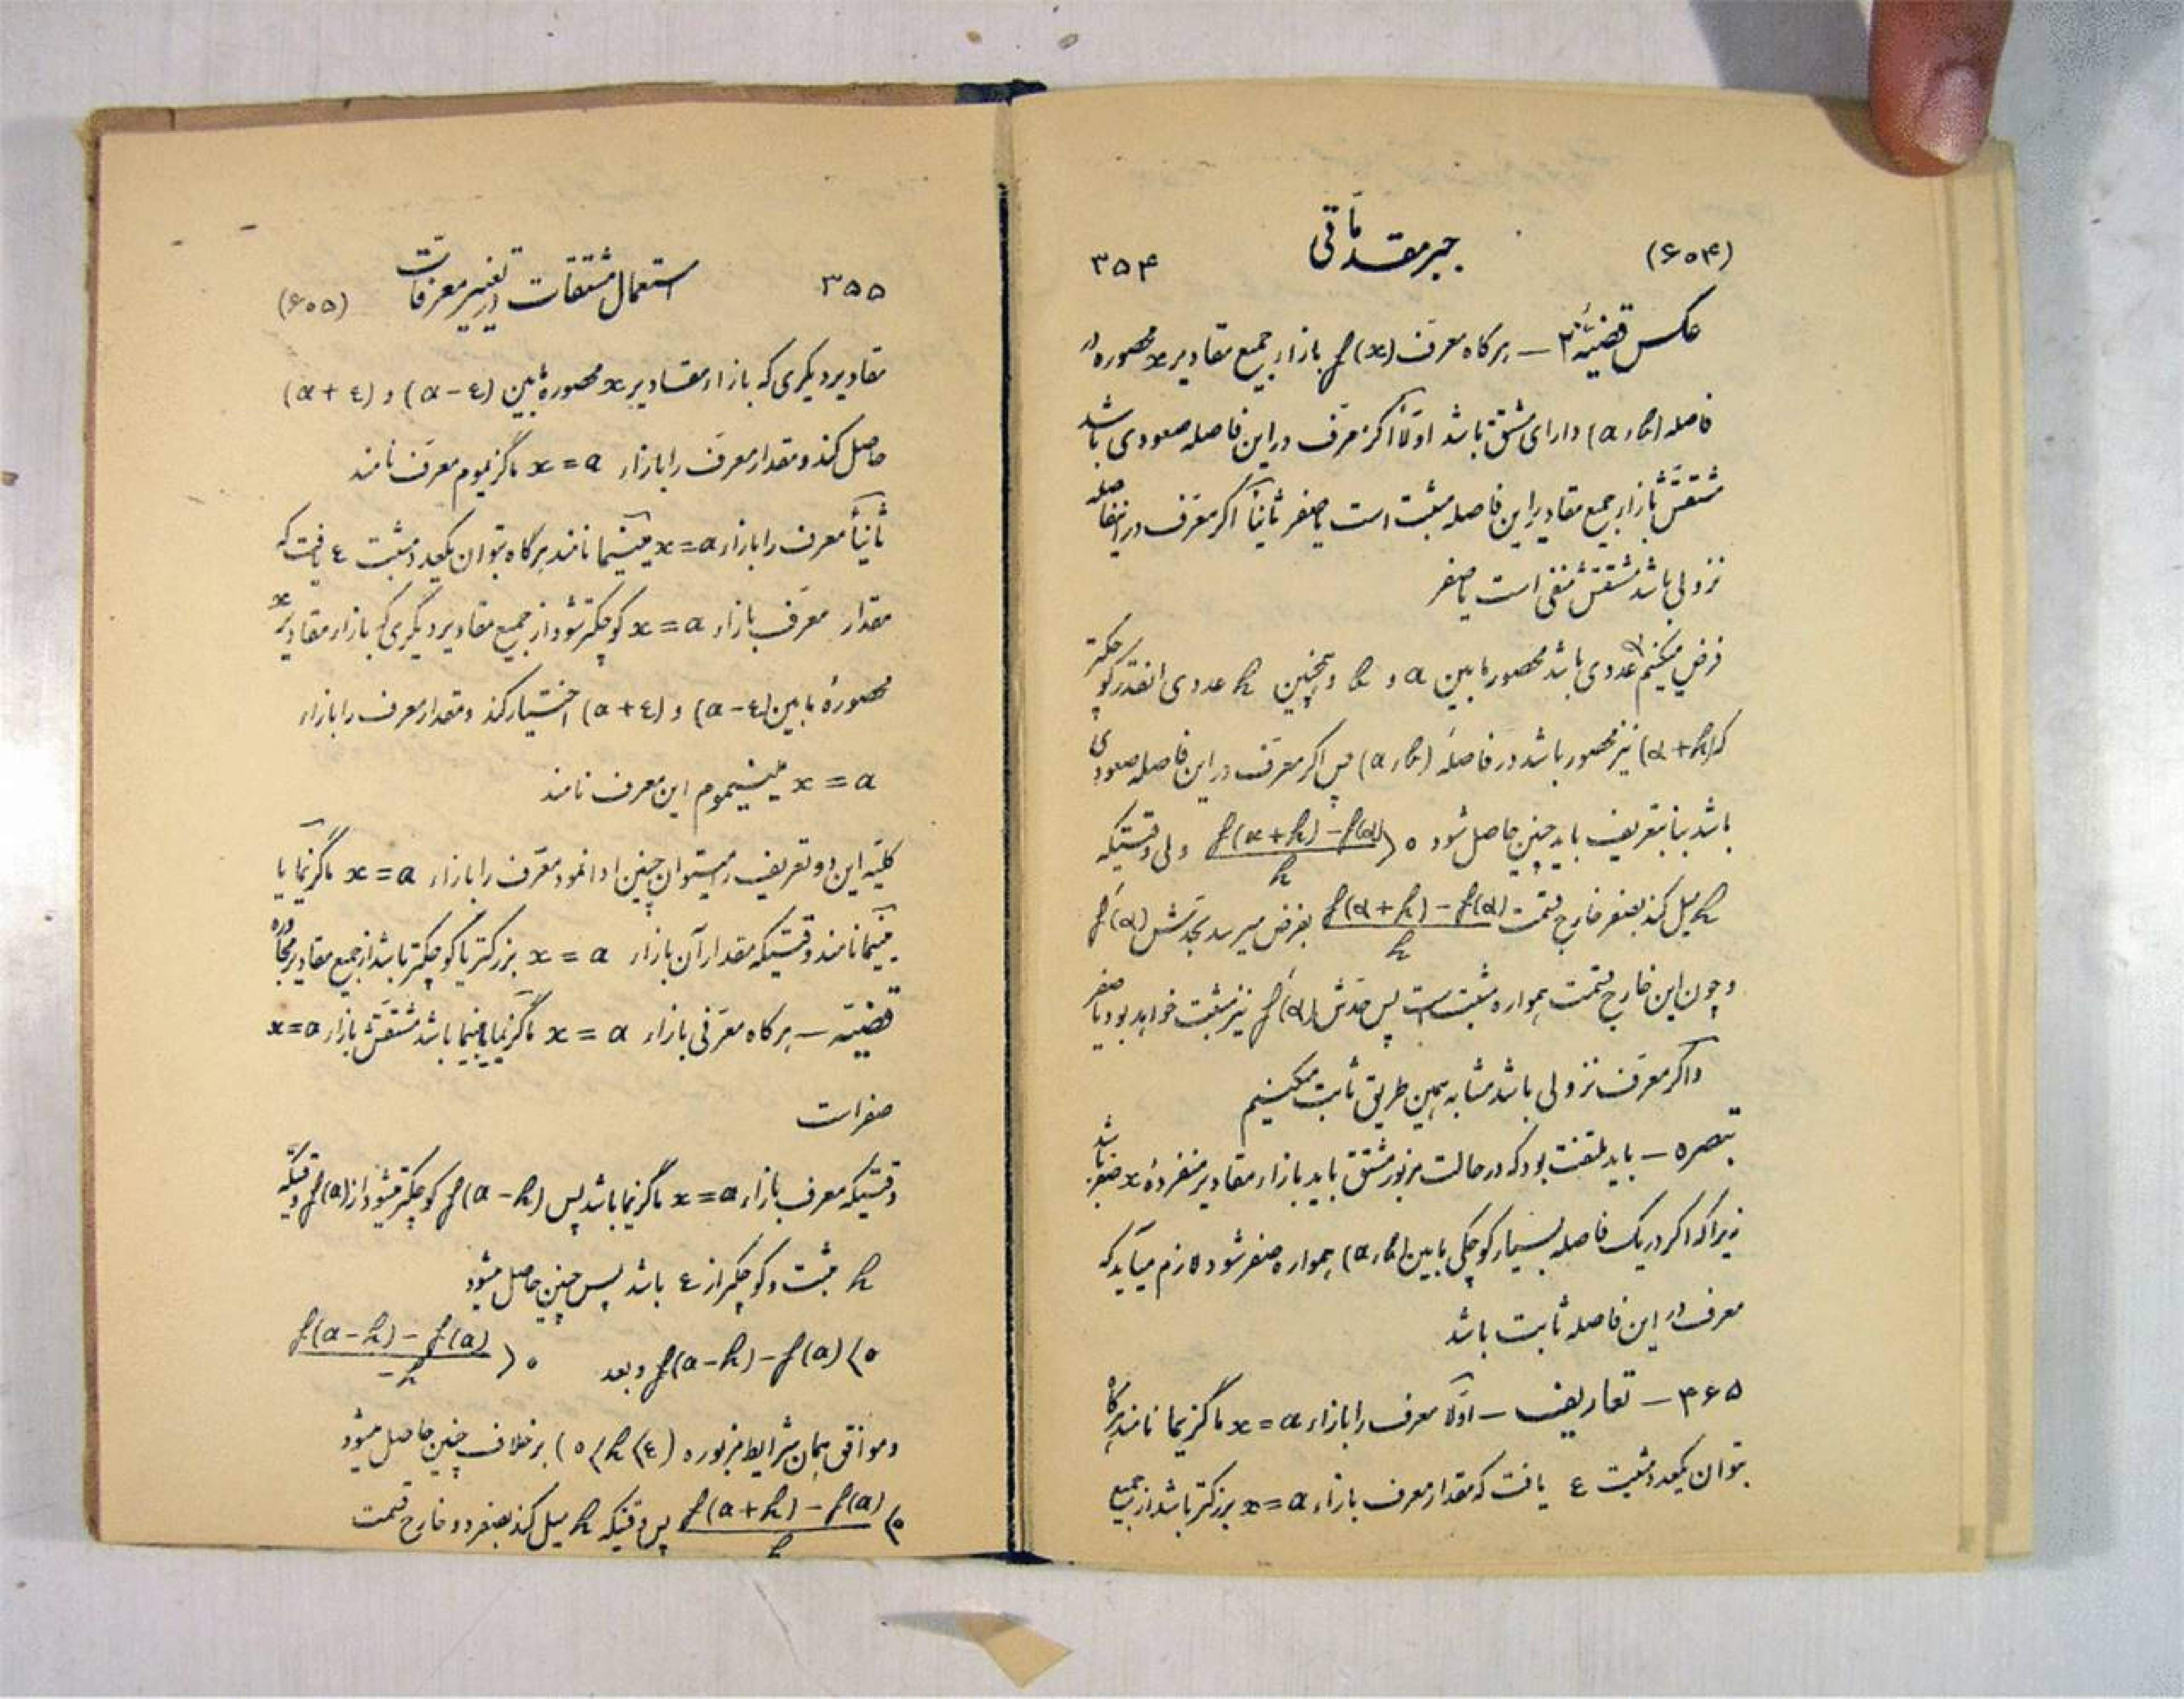 (۶۰۴) جبر مقدماتی ۳۵۴
عکس قضیهٔ ۲ — هرگاه معرف f(x) بازاء جمیع مقادیر x محصوره در
فاصله (a, b) دارای مشتق باشد اولاً اگر معرف در این فاصله صعودی باشد
مشتقش بازاء جمیع مقادیر این فاصله مثبت است یا صفر ثانیاً اگر معرف در اینفاصله
نزولی باشد مشتقش منفی است یا صفر
فرض میکنیم α عددی باشد محصور مابین a و b و همچنین h عددی انقدر کوچکتر
که (α+h) نیز محصور باشد در فاصلهٔ (a, b) پس اگر معرف در این فاصله صعودی
باشد بنا بتعریف باید چنین حاصل شود (f(α+h) − f(α))/h > ۰ ولی وقتیکه
h میل کند بصفر خارج قسمت (f(α+h) − f(α))/h بفرض میرسد بحدش f′(α)
و چون این خارج قسمت همواره مثبت است پس حدش f′(α) نیز مثبت خواهد بود یا صفر
و اگر معرف نزولی باشد مشابه همین طریق ثابت میکنیم
تبصره — باید ملتفت بود که در حالت مزبور مشتق باید بازاء مقادیر منفردهٔ x صفر باشد
زیرا که اگر در یک فاصله بسیار کوچکی مابین (a, b) همواره صفر شود لازم میآید که
معرف در این فاصله ثابت باشد
۳۶۵ — تعاریف — اولاً معرف را بازاء x = a ماگزیما نامند هرگاه
بتوان یکعدد مثبت ε یافت که مقدار معرف بازاء x = a بزرگتر باشد از جمیع
۳۵۵ استعمال مشتقات در تغییر معرفات (۶۰۵)
مقادیر دیگری که بازاء مقادیر x محصورهٔ مابین (a − ε) و (a + ε)
حاصل کند و مقدار معرف را بازاء x = a ماگزیموم معرف نامند
ثانیاً معرف را بازاء x = a مینیما نامند هرگاه بتوان یکعدد مثبت ε یافت که
مقدار معرف بازاء x = a کوچکتر شود از جمیع مقادیر دیگری که بازاء مقادیر x
محصورهٔ مابین (a − ε) و (a + ε) اختیار کند و مقدار معرف را بازاء
x = a مینیموم این معرف نامند
کلیه این دو تعریف را میتوان چنین ادا نمود معرف را بازاء x = a ماگزیما یا
مینیما نامند وقتیکه مقدار آن بازاء x = a بزرگتر یا کوچکتر باشد از جمیع مقادیر مجاوره
قضیه — هرگاه معرفی بازاء x = a ماگزیما یا مینیما باشد مشتقش بازاء x = a
صفر است
وقتیکه معرف بازاء x = a ماگزیما باشد پس f(a − h) کوچکتر میشود از f(a) وقتیکه
h مثبت و کوچکتر از ε باشد پس چنین حاصل میشود
f(a − h) − f(a) < ۰ و بعد (f(a − h) − f(a))/−h > ۰
و موافق همان شرایط مزبوره (ε > h > ۰) برخلاف چنین حاصل میشود
(f(a + h) − f(a))/h < ۰ پس وقتیکه h میل کند بصفر دو خارج قسمت